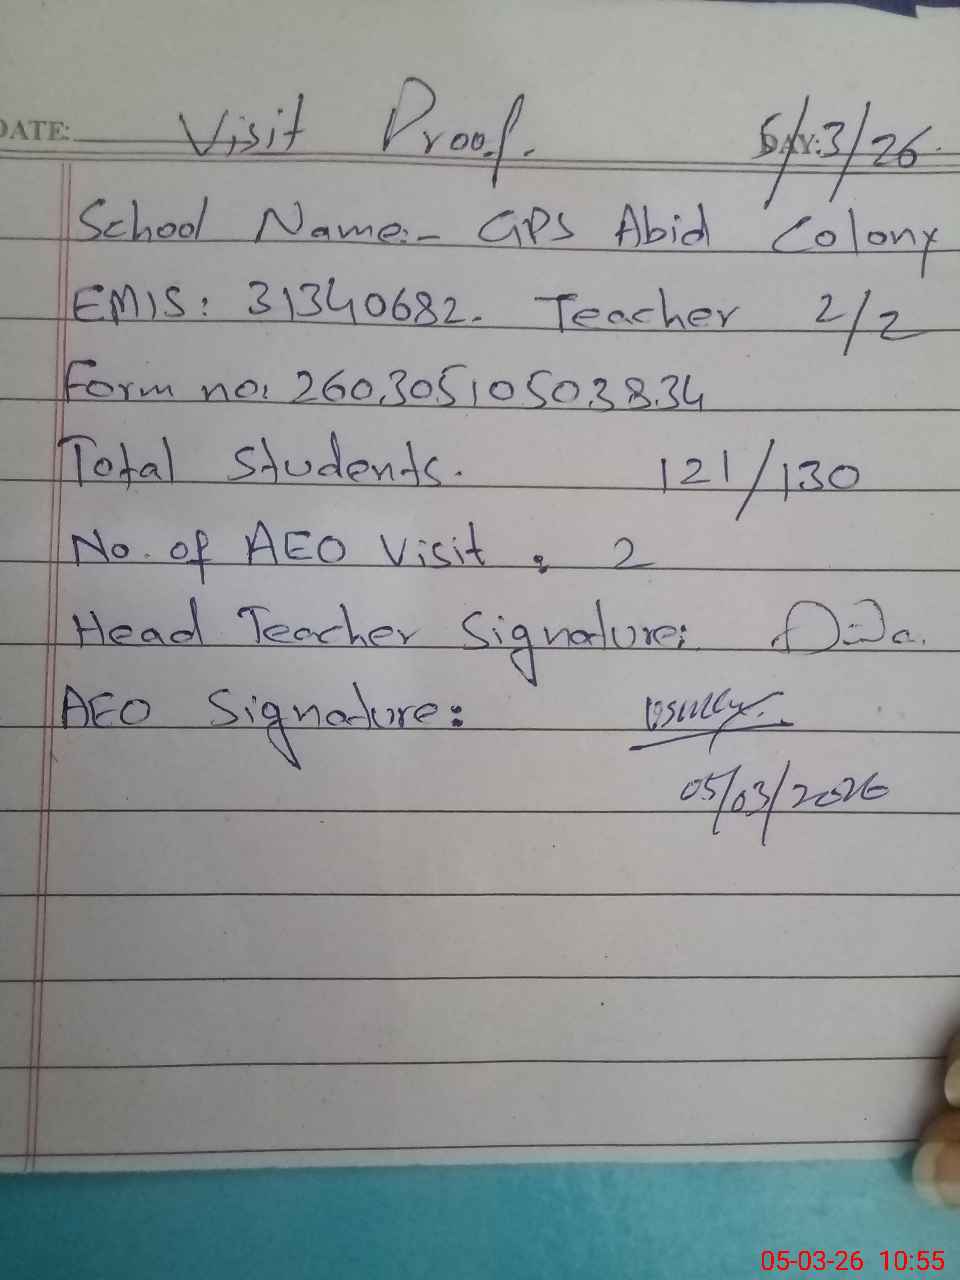 DATE: Visit Proof. DAY: 5/3/26
School Name:- GPS Abid Colony
EMIS: 31340682. Teacher 2/2
Form no: 26030510503834
Total Students. 121/130
No. of AEO Visit : 2
Head Teacher Signature:
AEO Signature:
05/03/2026
05-03-26 10:55